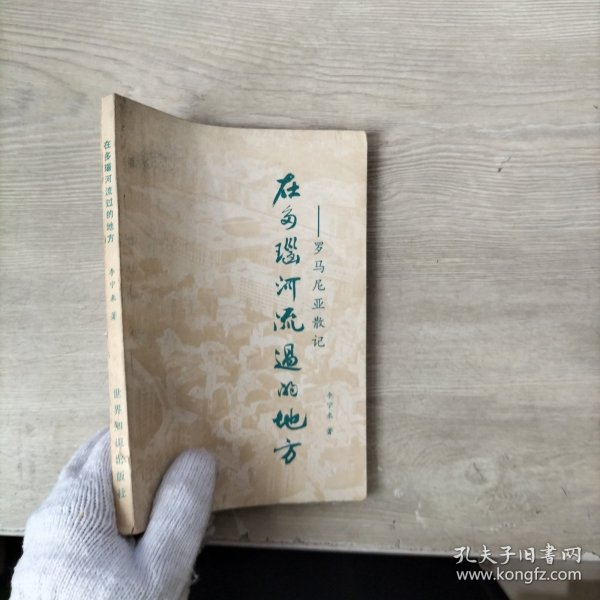 在多瑙河流过的地方
李宁来 著
世界知识出版社
在多瑙河流過的地方
——罗马尼亚散记
李宁来 著
孔夫子旧书网
www.kongfz.com